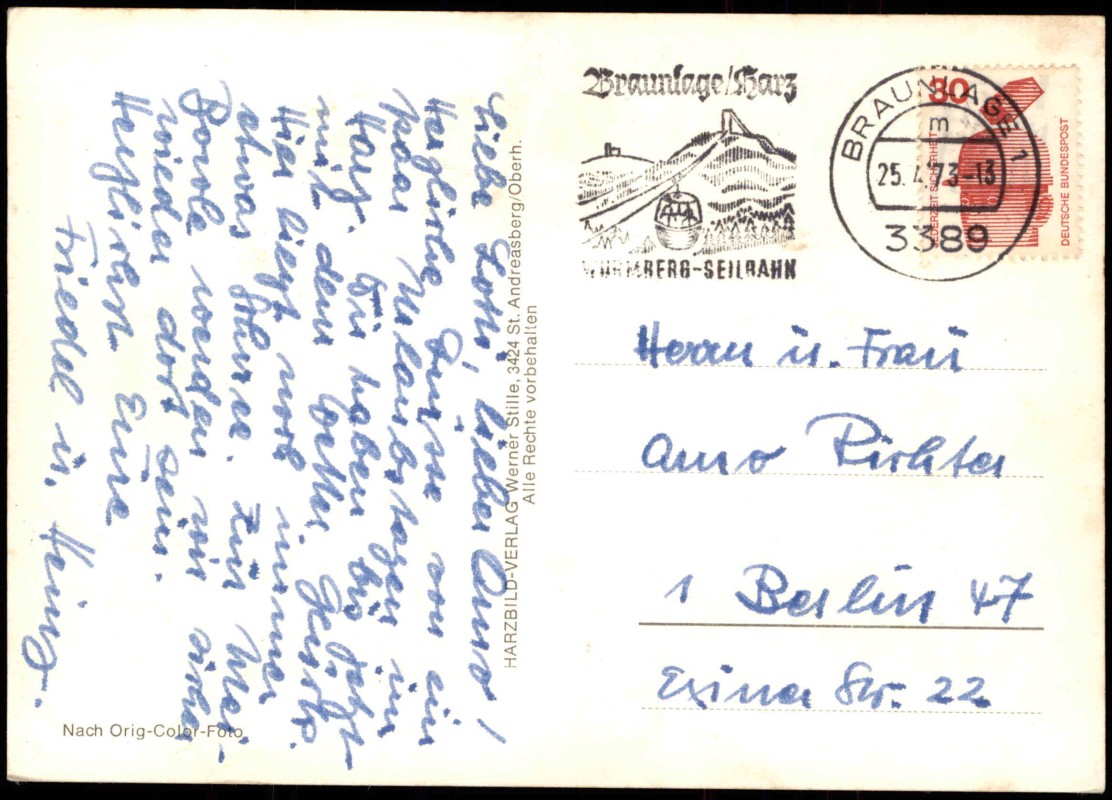 Liebe Lotti, lieber Arno!
Herzliche Grüsse von ein
paar Urlaubstagen im
Harz. Wir haben bis jetzt
mit dem Wetter
Hier liegt noch immer
etwas Schnee. Zur Mai-
Bowle werden wir sicher
wieder dort sein.
Herzlichst Eure
Friedel u. Heinz.
HARZBILD-VERLAG Werner Stille, 3424 St. Andreasberg/Oberh.
Alle Rechte vorbehalten
Nach Orig-Color-Foto
Braunlage/Harz
WURMBERG-SEILBAHN
BRAUNLAGE 1
m
25.4.73-13
3389
JEDERZEIT SICHERHEIT
DEUTSCHE BUNDESPOST
Herrn u. Frau
Arno Richter
1 Berlin 47
Str. 22